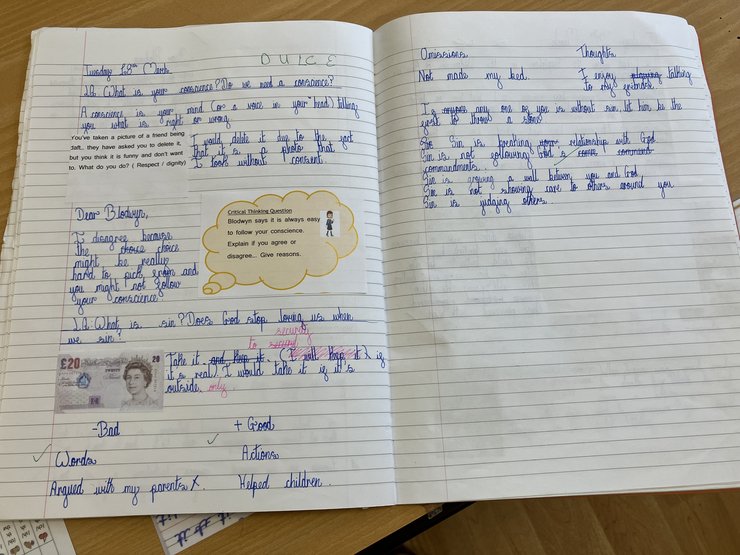 DUICE
Tuesday 18th March
L.Q. What is your conscience? Do we need a conscience?
A conscience is your mind (or a voice in your head) telling
you what is right or wrong
You've taken a picture of a friend being
daft.. they have asked you to delete it,
but you think it is funny and don't want
to. What do you do? ( Respect / dignity)
I would delete it due to the fact
that it is a photo that
I took without consent.
Dear Blodwyn,
I disagree because
the choice choice
might be really
hard to pick from and
you might not follow
your conscience
Critical Thinking Question
Blodwyn says it is always easy
to follow your conscience.
Explain if you agree or
disagree... Give reasons.
L.Q. What is sin? Does God stop loving us when
we sin?
security
to
Take it and keep it. (I will keep it if
it's real). I would take it if it's
outside only.
£20
20
-Bad
+ Good
Words
Actions
Argued with my parents X.
Helped children.
Omissions
Thoughts
Not made my bed.
I enjoy playing talking
to my friends
If anyone any one of you is without sin, let him be the
first to throw a stone
So Sin is breaking your relationship with God
Sin is not following God's comm command-
commandments.
Sin is growing a wall between you and God
Sin is not showing care to others around you
Sin is judging others.